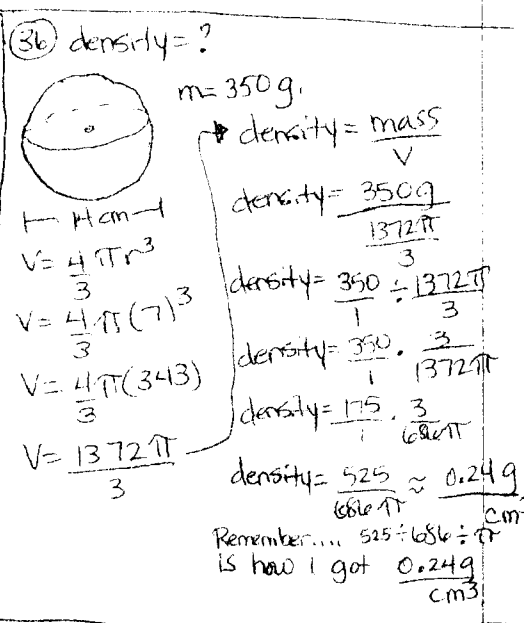 36 density = ?
m = 350 g.
14 cm
V = 4/3 πr³
V = 4/3 π(7)³
V = 4/3 π(343)
V = 1372π/3
density = mass/V
density = 350g/(1372π/3)
density = 350/1 ÷ 1372π/3
density = 350/1 · 3/1372π
density = 175/1 · 3/686π
density = 525/686π ≈ 0.24 g/cm
Remember.... 525 ÷ 686 ÷ π
is how I got 0.24g/cm3